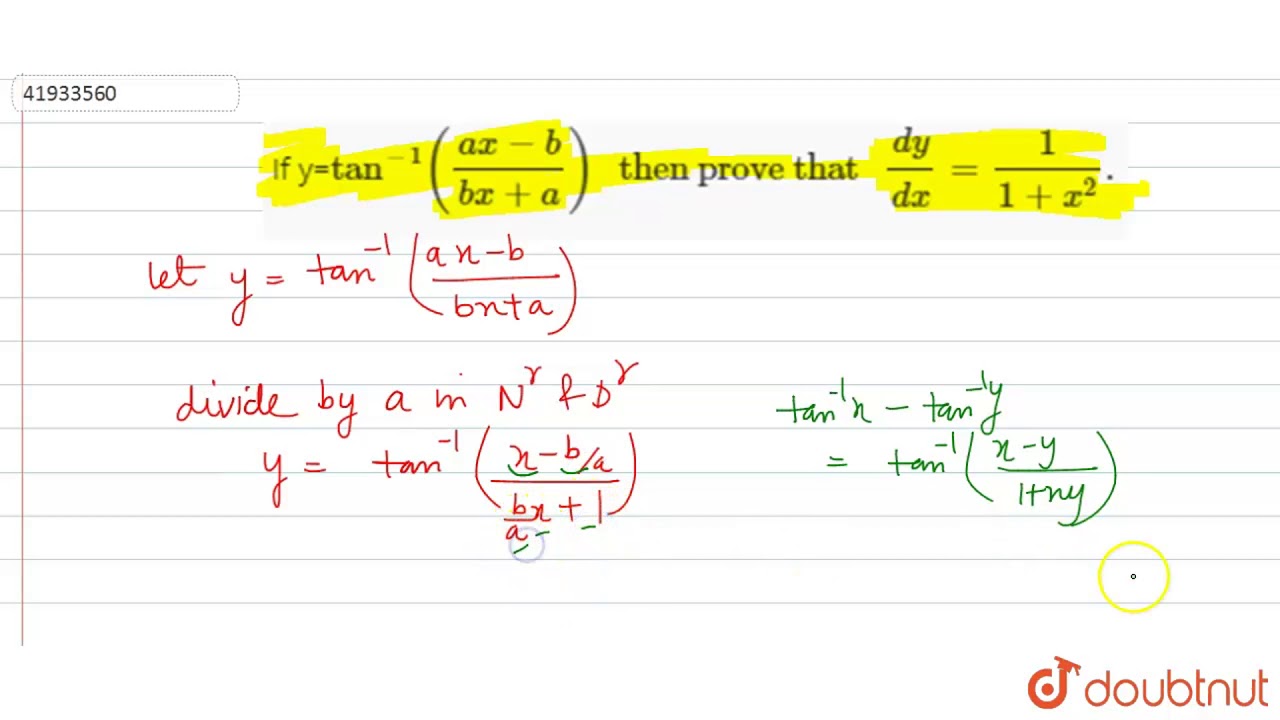 41933560
If y=tan⁻¹((ax − b)/(bx + a)) then prove that dy/dx = 1/(1 + x²).
let y = tan⁻¹((ax-b)/(bx+a))
divide by a in Nʳ & Dʳ
y = tan⁻¹((x-b/a)/(b/a x+1))
tan⁻¹x - tan⁻¹y
= tan⁻¹((x-y)/(1+xy))
doubtnut